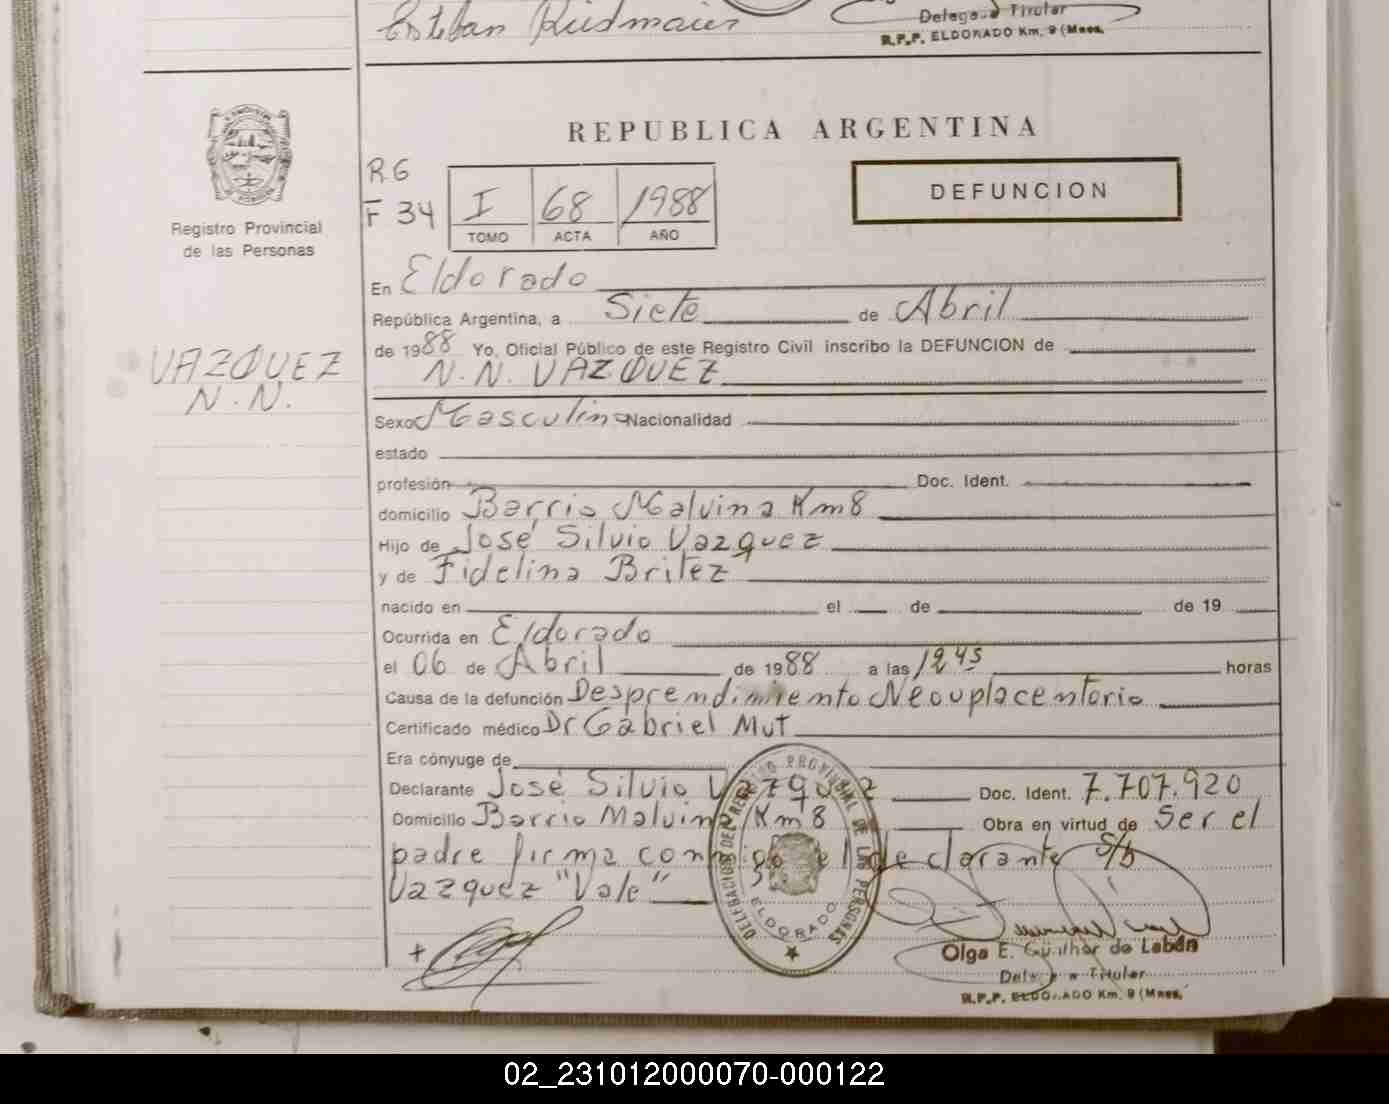 Esteban
Delega a Titular
R.P.P. ELDORADO Km. 9 (Mnes.
Registro Provincial
de las Personas
REPUBLICA ARGENTINA
R6
F 34
I 68 1988
TOMO ACTA AÑO
DEFUNCION
En Eldorado
República Argentina, a Siete de Abril
de 1988 Yo, Oficial Público de este Registro Civil inscribo la DEFUNCION de
VAZQUEZ
N.N.
N.N. VAZQUEZ
Sexo Masculino Nacionalidad
estado
profesión Doc. Ident.
domicilio Barrio Malvina Km8
Hijo de José Silvio Vazquez
y de Fidelina Britez
nacido en el de de 19
Ocurrida en Eldorado
el 06 de Abril de 1988 a las 1245 horas
Causa de la defunción Desprendimiento Neouplacentorio
Certificado médico Dr Gabriel Mut
Era cónyuge de
Declarante José Silvio Vazquez Doc. Ident. 7.707.920
Domicilio Barrio Malvina Km8 Obra en virtud de Ser el
padre firma conmigo el declarante S/b
Vazquez "Vale"
DELEGACION DEL REGISTRO PROVINCIAL DE LAS PERSONAS
ELDORADO
Olga E. de Labán
Delega a Titular
R.P.P. ELDORADO Km. 9 (Mnes.
02_231012000070-000122